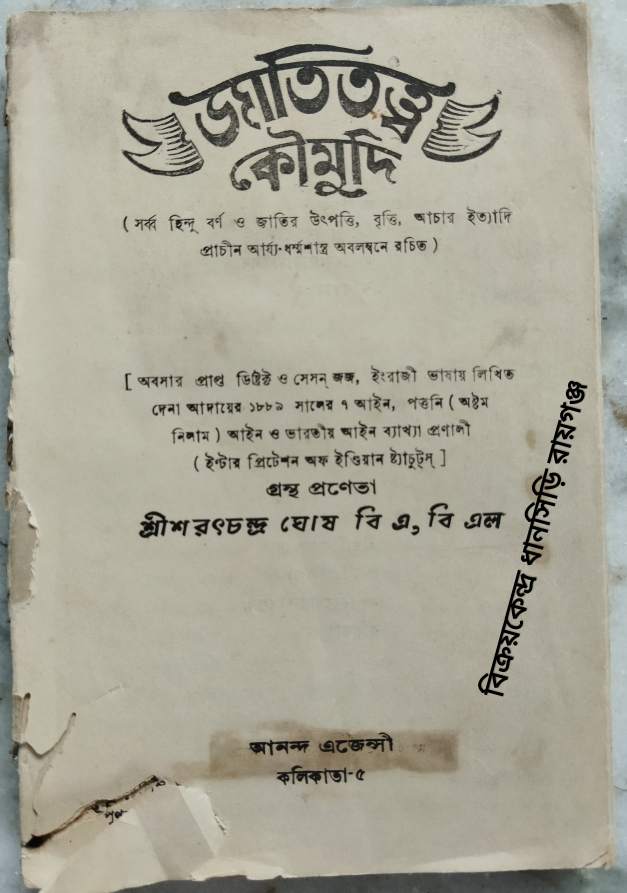 জাতিতত্ত্ব
কৌমুদি
( সর্ব্ব হিন্দু বর্ণ ও জাতির উৎপত্তি, বৃত্তি, আচার ইত্যাদি
প্রাচীন আর্য্য-ধর্ম্মশাস্ত্র অবলম্বনে রচিত )
[ অবসার প্রাপ্ত ডিষ্ট্রিক্ট ও সেসন্ জজ, ইংরাজী ভাষায় লিখিত
দেনা আদায়ের ১৮৮৯ সালের ৭ আইন, পত্তনি ( অষ্টম
নিলাম ) আইন ও ভারতীয় আইন ব্যাখ্যা প্রণালী
( ইণ্টার প্রিটেশন অফ ইণ্ডিয়ান ষ্ট্যাচুটস্ ]
গ্রন্থ প্রণেতা
শ্রীশরৎচন্দ্র ঘোষ বি এ, বি এল
আনন্দ এজেন্সী
কলিকাতা-৫
বিক্রয়কেন্দ্র ধানসিড়ি রায়গঞ্জ